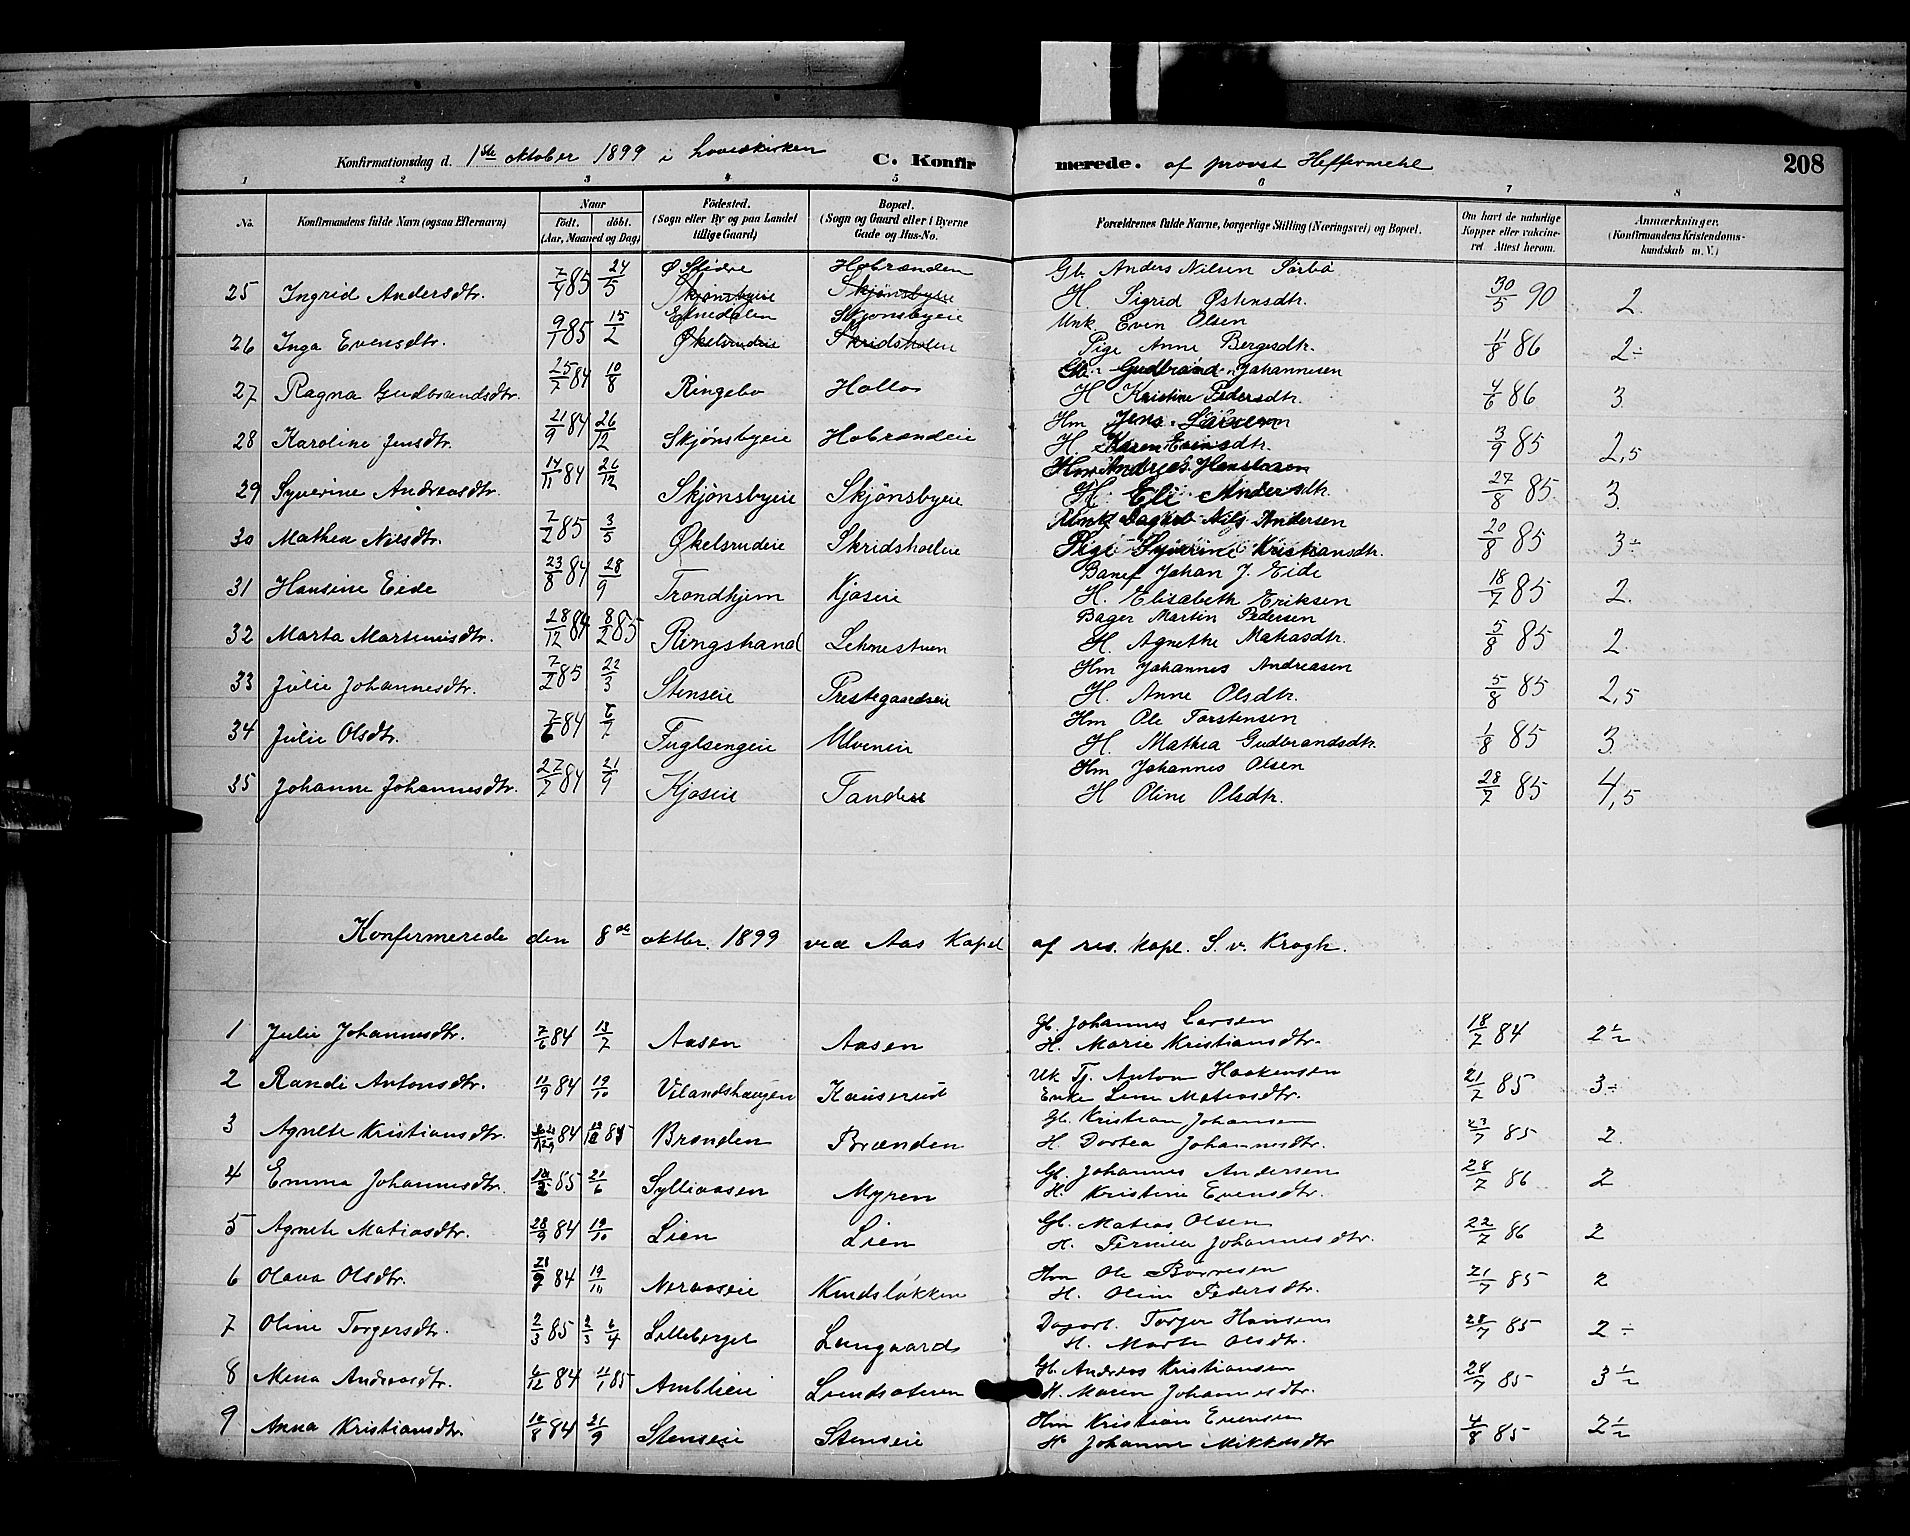 Konfirmationsdag d. 1ste oktober 1899 i Lovisekirken C. Konfirmerede. af provst Heffermehl 208
1 2 3 4 5 6 7 8
No. Konfirmandens fulde Navn (ogsaa Efternavn) Naar födt. döbt. (Aar, Maaned og Dag) Födested. (Sogn eller By og paa Landet tillige Gaard) Bopæl. (Sogn og Gaard eller i Byerne Gade og Hus-No. Forældrenes fulde Navne, borgerlige Stilling (Næringsvei) og Bopæl. Om havt de naturlige Kopper eller vakcineret. Attest herom. Anmærkninger. (Konfirmandens Kristendomskundskab m. V.)
Ø Slidre Hobrænden Gb. Anders Nilsen Sørbø
25 Ingrid Andersdtr. 7/4 85 24/5 Skjønsbyeie Skjønsbyeie H. Sigrid Østensdtr. 30/5 90 2.
Etnedalen Skjønsbyeie Unk. Even Olsen
26 Inga Evensdtr. 9/1 85 15/2 Økelsrudeie Skridsholen Pige Anne Bergesdtr. 11/8 86 2÷
Gb. Gudbrand Johannesen
27 Ragna Gudbrandsdtr. 25/7 84 10/8 Ringebo Hollos H Kristine Pedersdtr. 4/6 86 3.
Hm Jens Larsen
28 Karoline Jensdtr. 21/9 84 26/12 Skjønsbyeie Hobrændeie H. Karen Evensdtr. 3/9 85 2,5
Hm Andreas Hanslasen
29 Syverine Andreasdtr. 14/11 84 26/12 Skjønsbyeie Skjønsbyeie H. Eli Andersdtr. 27/8 85 3.
Unk Dagarb Nils Andersen
30 Mathea Nilsdtr. 7/2 85 3/5 Økelsrudeie Skridsholeie Pige Syverine Kristiansdtr. 20/8 85 3÷
Banef Johan J. Eide
31 Hansine Eide 23/8 84 28/9 Trondhjem Kjoseie H. Elisabeth Eriksen 18/7 85 2.
Bager Martin Pedersen
32 Marta Martinusdtr. 28/12 84 8/2 85 Ringstrand Lehnestuen H. Agnethe Matiasdtr. 5/8 85 2.
Hm Johannes Andreasen
33 Julie Johannesdtr. 7/2 85 22/3 Stenseie Prestegaardseie H. Anne Olsdtr. 5/8 85 2,5
Hm Ole Torstensen
34 Julie Olsdtr. 7/6 84 6/7 Fuglsengeie Ulveneie H. Mathea Gudbrandsdtr. 1/8 85 3
Hm Johannes Olsen
35 Johanne Johannesdtr. 27/7 84 21/9 Kjoseie Tandeie H Oline Olsdtr. 28/7 85 4,5
Konfermerede den 8de oktbr. 1899 ved Aas Kapel af res. kapl. S. v. Krogh.
1 Julie Johannesdtr. 7/6 84 13/7 Aasen Aasen Gb. Johannes Larsen
H. Marie Kristiansdtr. 18/7 84 2½
2 Randi Antonsdtr. 11/9 84 19/10 Vilandshaugen Kauserud Uk Tj. Anton Haakensen
Enke Lina Matiasdtr. 21/7 85 3÷
3 Agnete Kristiansdtr. 84 85 Brænden Brænden Gb. Kristian Johansen
H. Dortea Johannesdtr. 23/7 85 2.
4 Emma Johannesdtr. 85 21/6 Sylliaasen Myren Gb. Johannes Andersen
H. Kristine Evensdtr. 28/7 86 2
5 Agnete Matiasdtr. 28/9 84 19/10 Lien Lien Gb. Matias Olsen
H. Pernille Johannesdtr. 22/7 86 2
6 Olava Olsdtr. 84 19/10 Neraaseie Kindsløkken Hm Ole Børresen
H. Oline Pedersdtr. 21/7 85 2
7 Oline Torgersdtr. 2/3 85 6/4 Lilleberget Lungaards Dagarb. Torger Hansen
H. Marte Olsdtr. 28/7 85 2÷
8 Mina Andreasdtr. 6/12 84 4/1 85 Amblieie Lundsateren Gb. Andreas Kristiansen
H. Maren Johannesdtr. 28/7 85 3½
9 Anna Kristiansdtr. 10/8 84 21/9 Stenseie Stenseie Hm Kristian Evensen
H. Johanne Mikkelsdtr 4/8 85 2½